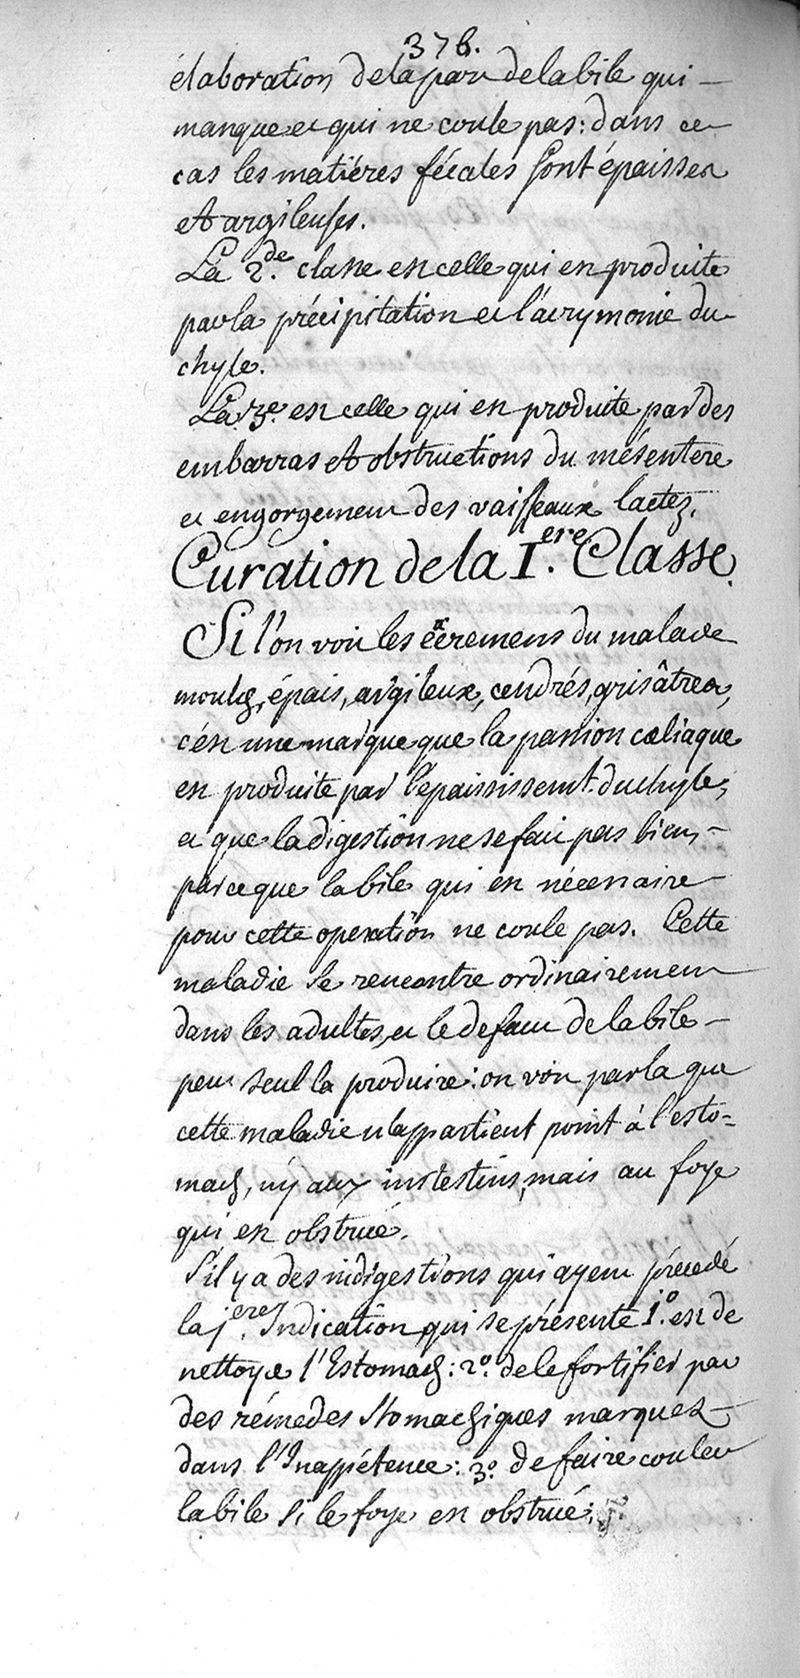 376.
élaboration de la part de la bile qui
manque et qui ne coule pas: dans ce
cas les matiéres fécales sont épaisses
et argileuses.
La 2.de classe est celle qui est produite
par la précipitation et l'acrymonie du
chyle.
La 3e. est celle qui est produite par des
embarras et obstructions du mésentere
et engorgement des vaisseaux lactez.
Curation de la I.ere Classe.
Si l'on voit les excremens du malade
moulez, épais, argileux, cendrés, grisâtres,
c'est une marque que la passion cœliaque
est produite par l'epaississemt. du chyle,
et que la digestion ne se fait pas bien,
parce que la bile qui est nécessaire
pour cette operation ne coule pas. Cette
maladie se rencontre ordinairement
dans les adultes, et le defaut de la bile
peut seul la produire: on voit par la que
cette maladie n'appartient point à l'esto-
mach, ny aux instestins, mais au foye
qui est obstrué.
S'il y a des indigestions qui ayent précédé
la j.ere Indication qui se présente 1.o est de
nettoyer l'Estomach: 2.o de le fortifier par
des rémedes stomachiques marquez
dans l'Inappétence: 3.o de faire couler
la bile si le foye est obstrué;